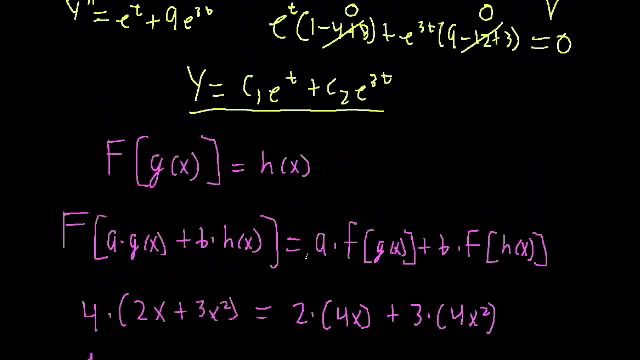 Y'' = e^t + 9e^{3t} e^t(1-4+3) + e^{3t}(9-12+3) = 0
0 0 √
Y = C₁e^t + C₂e^{3t}
F[g(x)] = h(x)
F[a·g(x) + b·h(x)] = a·f[g(x)] + b·F[h(x)]
4·(2x + 3x²) = 2·(4x) + 3·(4x²)